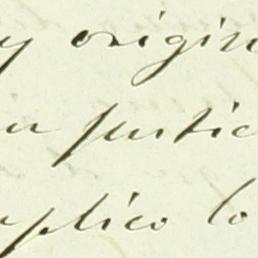 y origin
en justic
uplico lo